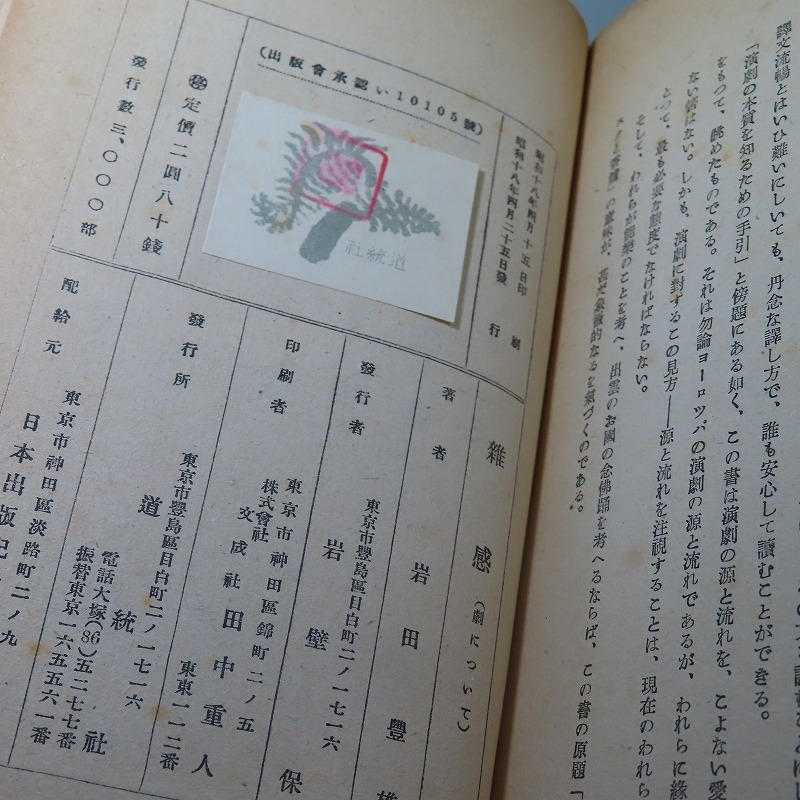 譯文流暢とはいひ難いにしても、丹念な譯し方で、誰も安心して讀むことができる。
「演劇の本質を知るための手引」と傍題にある如く、この書は演劇の源と流れを、こよない愛
をもつて、眺めたものである。それは勿論ヨーロツパの演劇の源と流れであるが、われらに緣
ない筈はない。しかも、演劇に對するこの見方——源と流れを注視することは、現在のわれら
とつて、最も必要な態度でなければならない。
そして、われらが能樂のことを考へ、出雲のお國の念佛踊を考へるならば、この書の原題「
の意味が、甚だ象徵的なるを氣づくのである。
昭和十八年四月十五日印刷
昭和十八年四月二十五日發行
(出版會承認い10105號)
道統社
定價二圓八十錢
發行數三、〇〇〇部
雜感(劇について)
著者 岩田豐雄
東京市豐島區目白町二ノ一七一六
發行者 岩壁 保
東京市神田區錦町二ノ五
印刷者 株式會社文成社 田中重人
東東一一二番
東京市豐島區目白町二ノ一七一六
發行所 道統社
電話大塚(86)五二七七番
振替東京一六五五六一番
東京市神田區淡路町二ノ九
配給元 日本出版